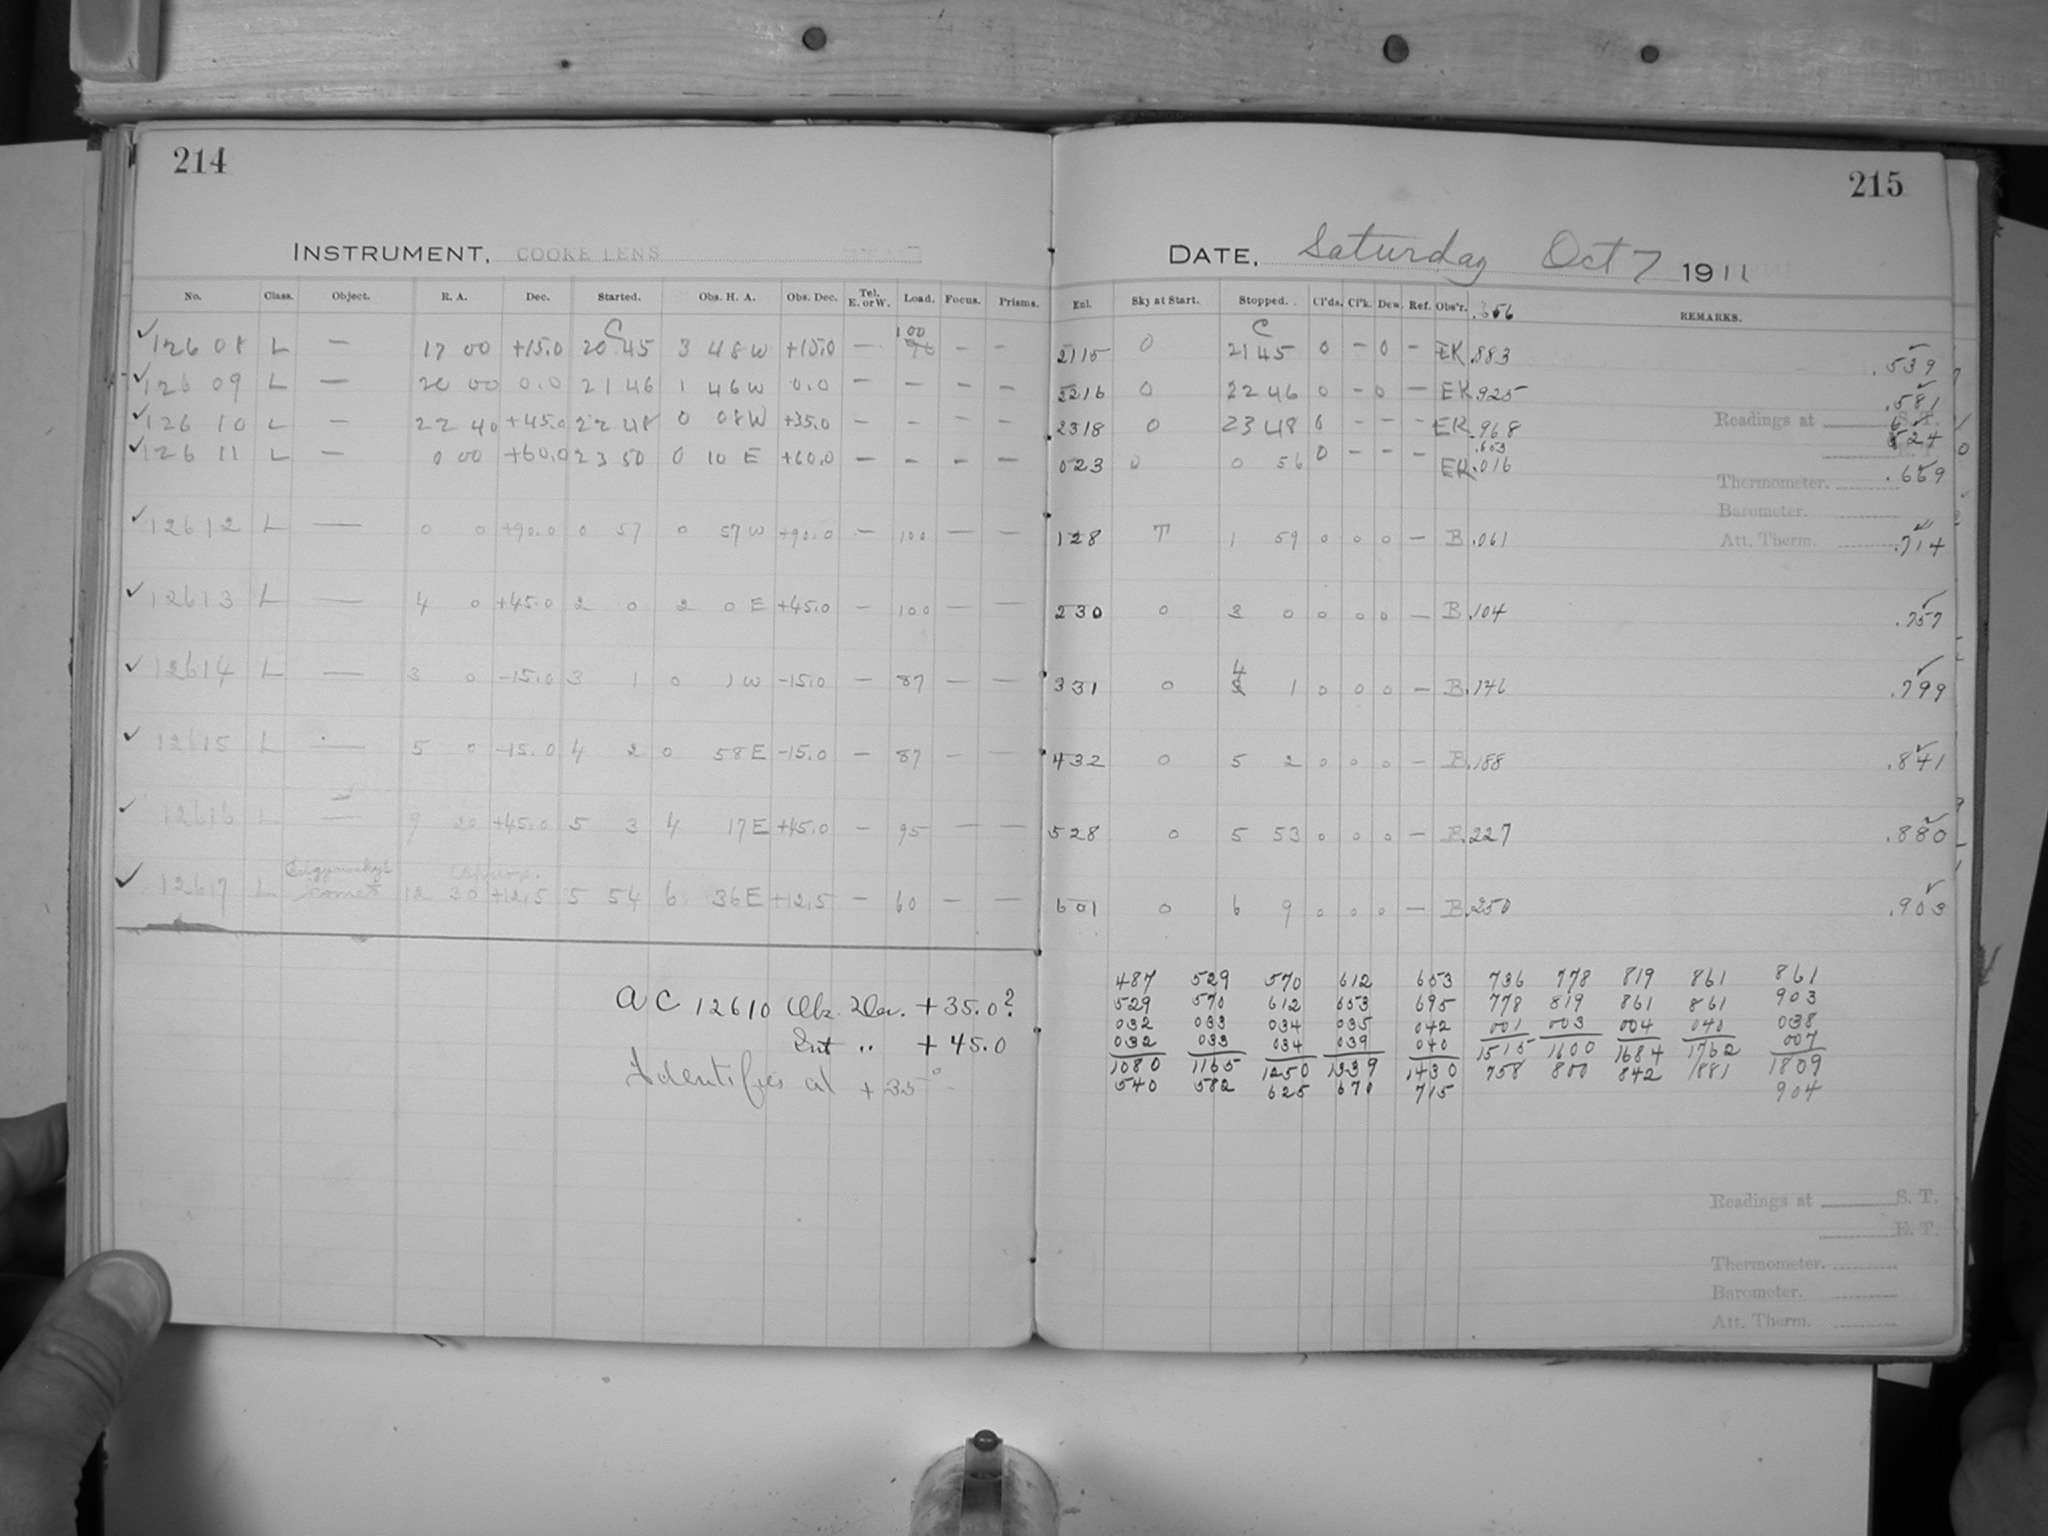 214
INSTRUMENT, COOKE LENS
No. Class. Object. R. A. Dec. Started. Obs. H. A. Obs. Dec. Tel. E. or W. Load. Focus. Prisms.
12608 L — 17 00 +15.0 20 45 3 48 W +15.0 — 100 — —
12609 L — 20 00 0.0 21 46 1 46 W 0.0 — — — —
12610 L — 22 40 +45.0 22 48 0 08 W +35.0 — — — —
12611 L — 0 00 +60.0 23 50 0 10 E +60.0 — — — —
12612 L — 0 0 +90.0 0 57 0 57 W +90.0 — 100 — —
12613 L — 4 0 +45.0 2 0 2 0 E +45.0 — 100 — —
12614 L — 3 0 -15.0 3 1 0 1 W -15.0 — 87 — —
12615 L — 5 0 -15.0 4 2 0 58 E -15.0 — 87 — —
12616 L — 9 20 +45.0 5 3 4 17 E +45.0 — 95 — —
Approx.
12617 L comet 12 30 +12.5 5 54 6 36 E +12.5 — 60 — —
AC 12610 Obs. Dec. +35.0?
Int " +45.0
Identifies at +35°
215
DATE, Saturday Oct 7 1911
Exl. Sky at Start. Stopped. Cl'ds. Cl'k. Dew. Ref. Obs'r. REMARKS.
C
2115 0 21 45 0 — 0 — EK .883 .539
2216 0 22 46 0 — 0 — EK .925 .581
2318 0 23 48 0 — — — EK .968
.653
023 0 0 56 0 — — — EK .016 .669
128 T 1 59 0 0 0 — B .061 .714
230 0 3 0 0 0 0 — B .104 .757
331 0 4 1 0 0 0 — B .146 .799
432 0 5 2 0 0 0 — B .188 .841
528 0 5 53 0 0 0 — B .227 .880
601 0 6 9 0 0 0 — B .250 .903
Readings at S. T.
E. T.
Thermometer.
Barometer.
Att. Therm.
487 529 570 612 653 736 778 819 861 861
529 570 612 653 695 778 819 861 861 903
032 033 034 035 042 001 003 004 040 038
032 033 034 039 040 1515 1600 1684 1762 007
1080 1165 1250 1339 1430 758 800 842 881 1809
540 582 625 670 715 904
Readings at S. T.
E. T.
Thermometer.
Barometer.
Att. Therm.